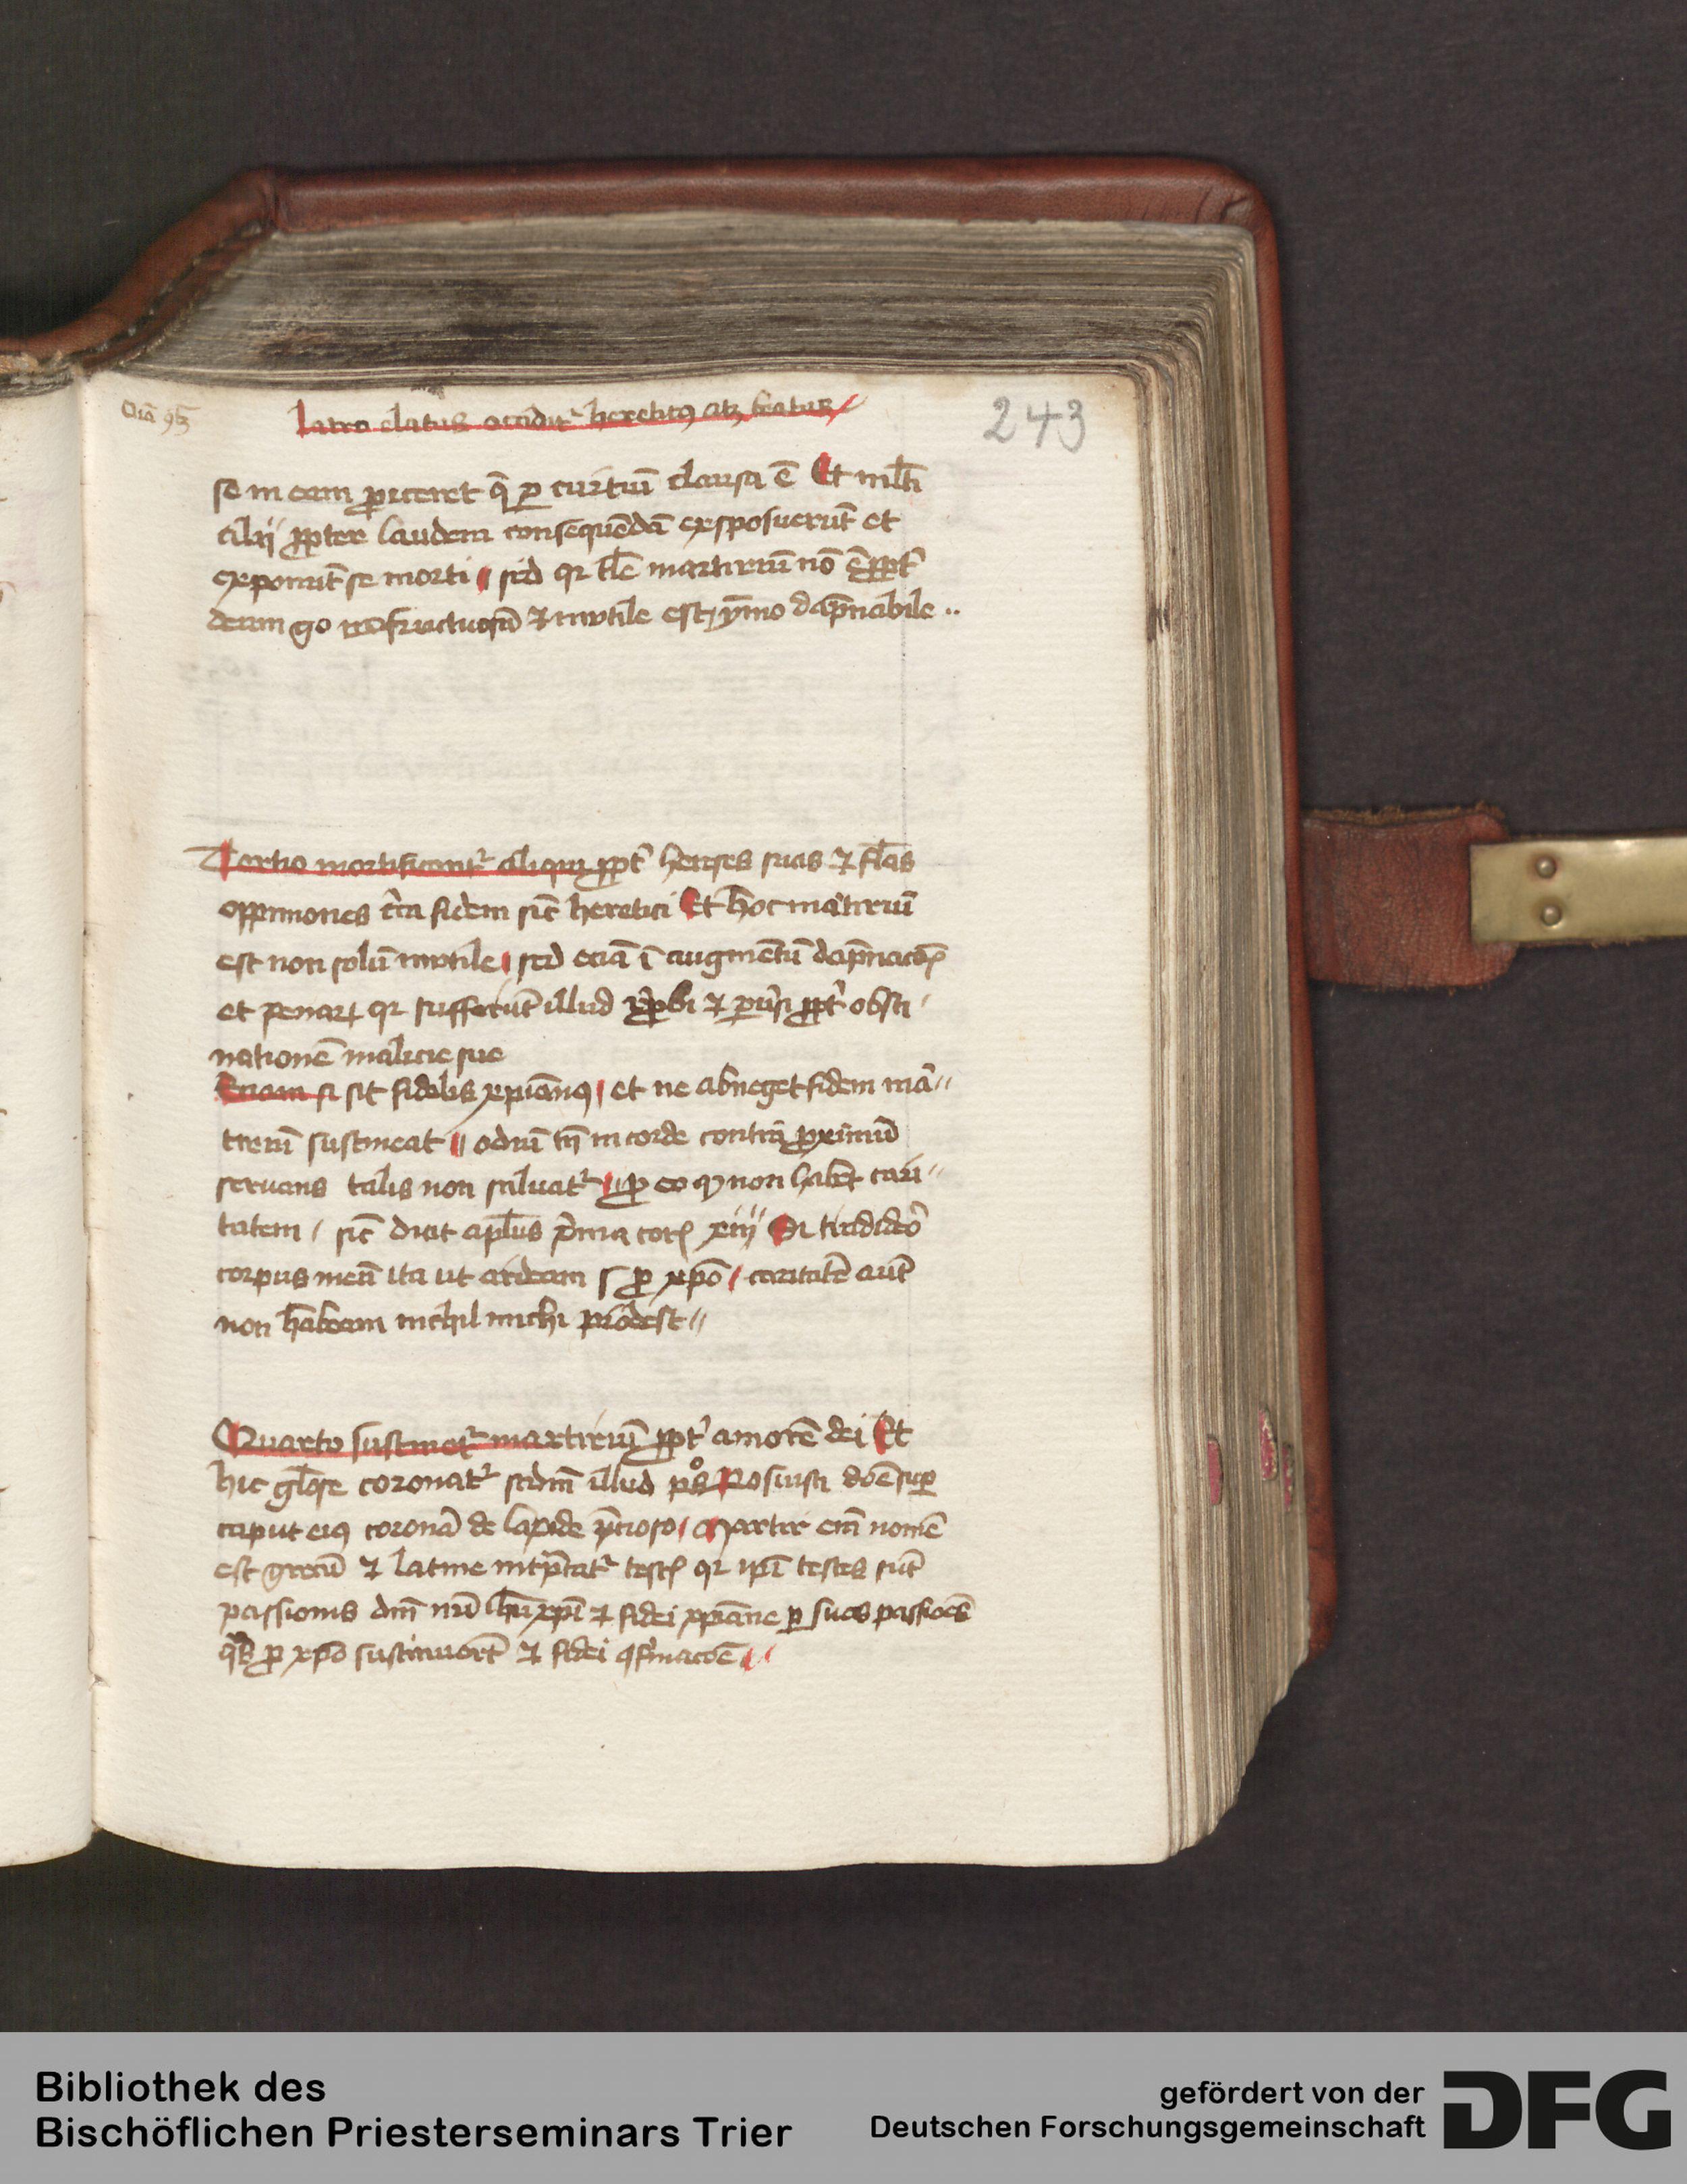 Latro elatus occidit᷑ heretic⁹ atq beatus
243
se in eam proiceret q̄ ꝑ curtiū clausa ē Et ml̄ti
alij ꝓpter laudem consequēdā exsposuerūt et
exponūt se morti sed qꝛ tl̄e martiriū nō ē ꝓpt̉
deum go infructuosū ⁊ inutile est ym̄o dāpnabile ..
Tertio mortificant᷑ aliqui ꝓpt̉ hereses suas ⁊ fl̄as
oppiniones ꝯtra fidem sic̄ heretici Et hoc mātiriū
est non solū inutile sed eciā ī augmētū dāpnacōis
et penaꝝ qꝛ sufferūt illud ꝓpt̉ obsti
nationē malicie sue
Etiam si sit fidelis xp̄ian⁹ et ne abneget fidem mā
tirerū sustineat odiū tn̄ in corde contra ꝓximū
seruans talis non saluat᷑ ꝓ eo ꝙ non habet cari
tatem / sic̄ dicit apl̄us p̄ma cor xiij Si tradidero
corpus meū ita ut ardeam s ꝓ xp̄o / caritatē aut̄
non habeam nichil michi prodest
Quarto sustinet᷑ martiriū ꝓpt̉ amorē dei Et
hic gl̄ose coronat᷑ scdm̄ illud ps Posuisti dn̄e suꝑ
caput ei⁹ coronā de lapide p̄cioso Martir em̄ nomē
est grecū ⁊ latine intp̄tat᷑ testis qꝛ ip̄i testes sūt
passionis dn̄i nr̄i Ihū xp̄i ⁊ fidei xp̄iane ꝑ suas passiōes
qs ꝓ xp̄o sustinuert̄ ⁊ fidei ꝯfirmacōe
Bibliothek des
Bischöflichen Priesterseminars Trier
gefördert von der
Deutschen Forschungsgemeinschaft
DFG